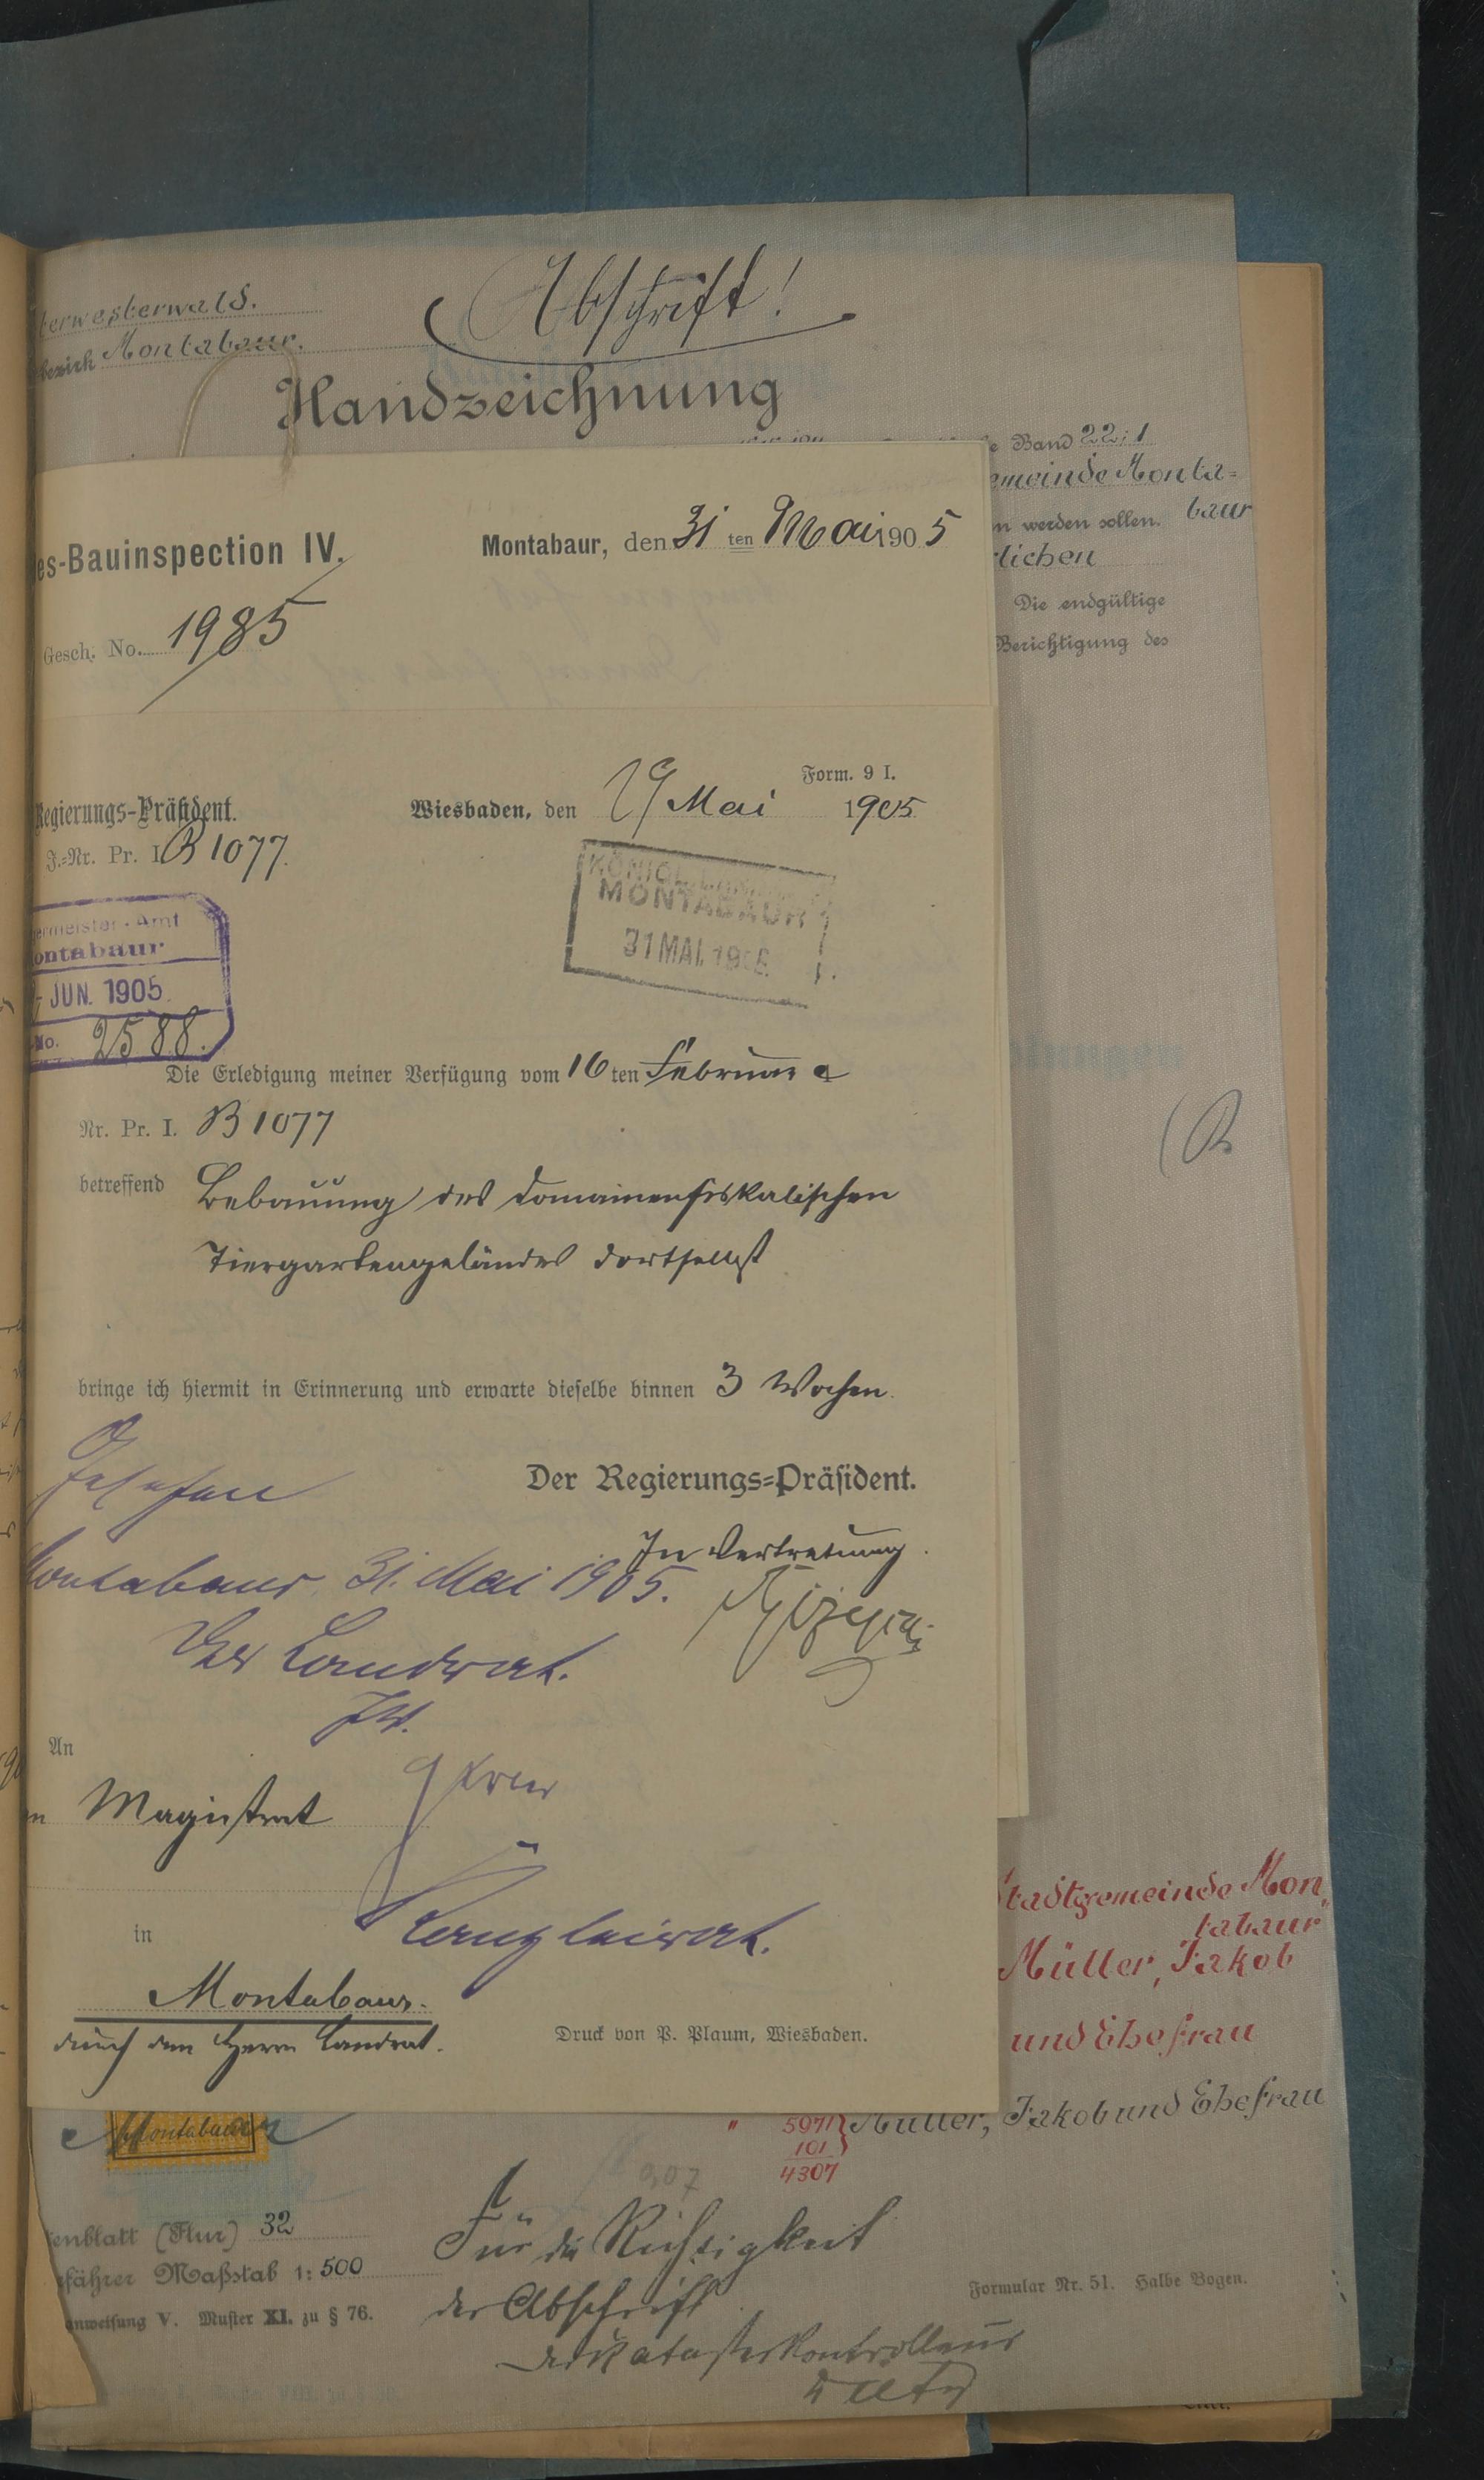 Abschrift!
terwesterwald.
bezirk Montabaur.
Handzeichnung
e Band 22; 1
emeinde Monta-
n werden sollen. baur
rlichen
Die endgültige
Berichtigung des
es-Bauinspection IV.
Montabaur, den 31 ten Mai 1905
Gesch. No. 1985
Form. 9 I.
Regierungs-Präsident.
Wiesbaden, den 29 Mai 1905
J.-Nr. Pr. I. B 1077.
KÖNIGL.
MONTABAUR
31 MAI. 190
ermeister-Amt
ontabaur
JUN. 1905
No. 2588.
Die Erledigung meiner Verfügung vom 16 ten Februar
Nr. Pr. I. B 1077
betreffend Bebauung des domainenfiskalischen
Tiergartengeländes dortselbst
bringe ich hiermit in Erinnerung und erwarte dieselbe binnen 3 Wochen.
Gesehen
Der Regierungs-Präsident.
In Vertretung.
Montabaur, 31. Mai 1905.
Der Landrat.
An
n Magistrat
Kanzleirat.
in
Montabaur.
durch den Herrn Landrat.
Druck von P. Plaum, Wiesbaden.
Stadtgemeinde Mon
tabaur
Müller, Jakob
und Ehefrau
" 5971 Müller, Jakob und Ehefrau
101
4307
Montabaur
907
enblatt (Flur) 32
efährer Maßstab 1:500
anweisung V. Muster XI. zu § 76.
Für die Richtigkeit
der Abschrift
Der Katasterkontrolleur
Formular Nr. 51. Halbe Bogen.